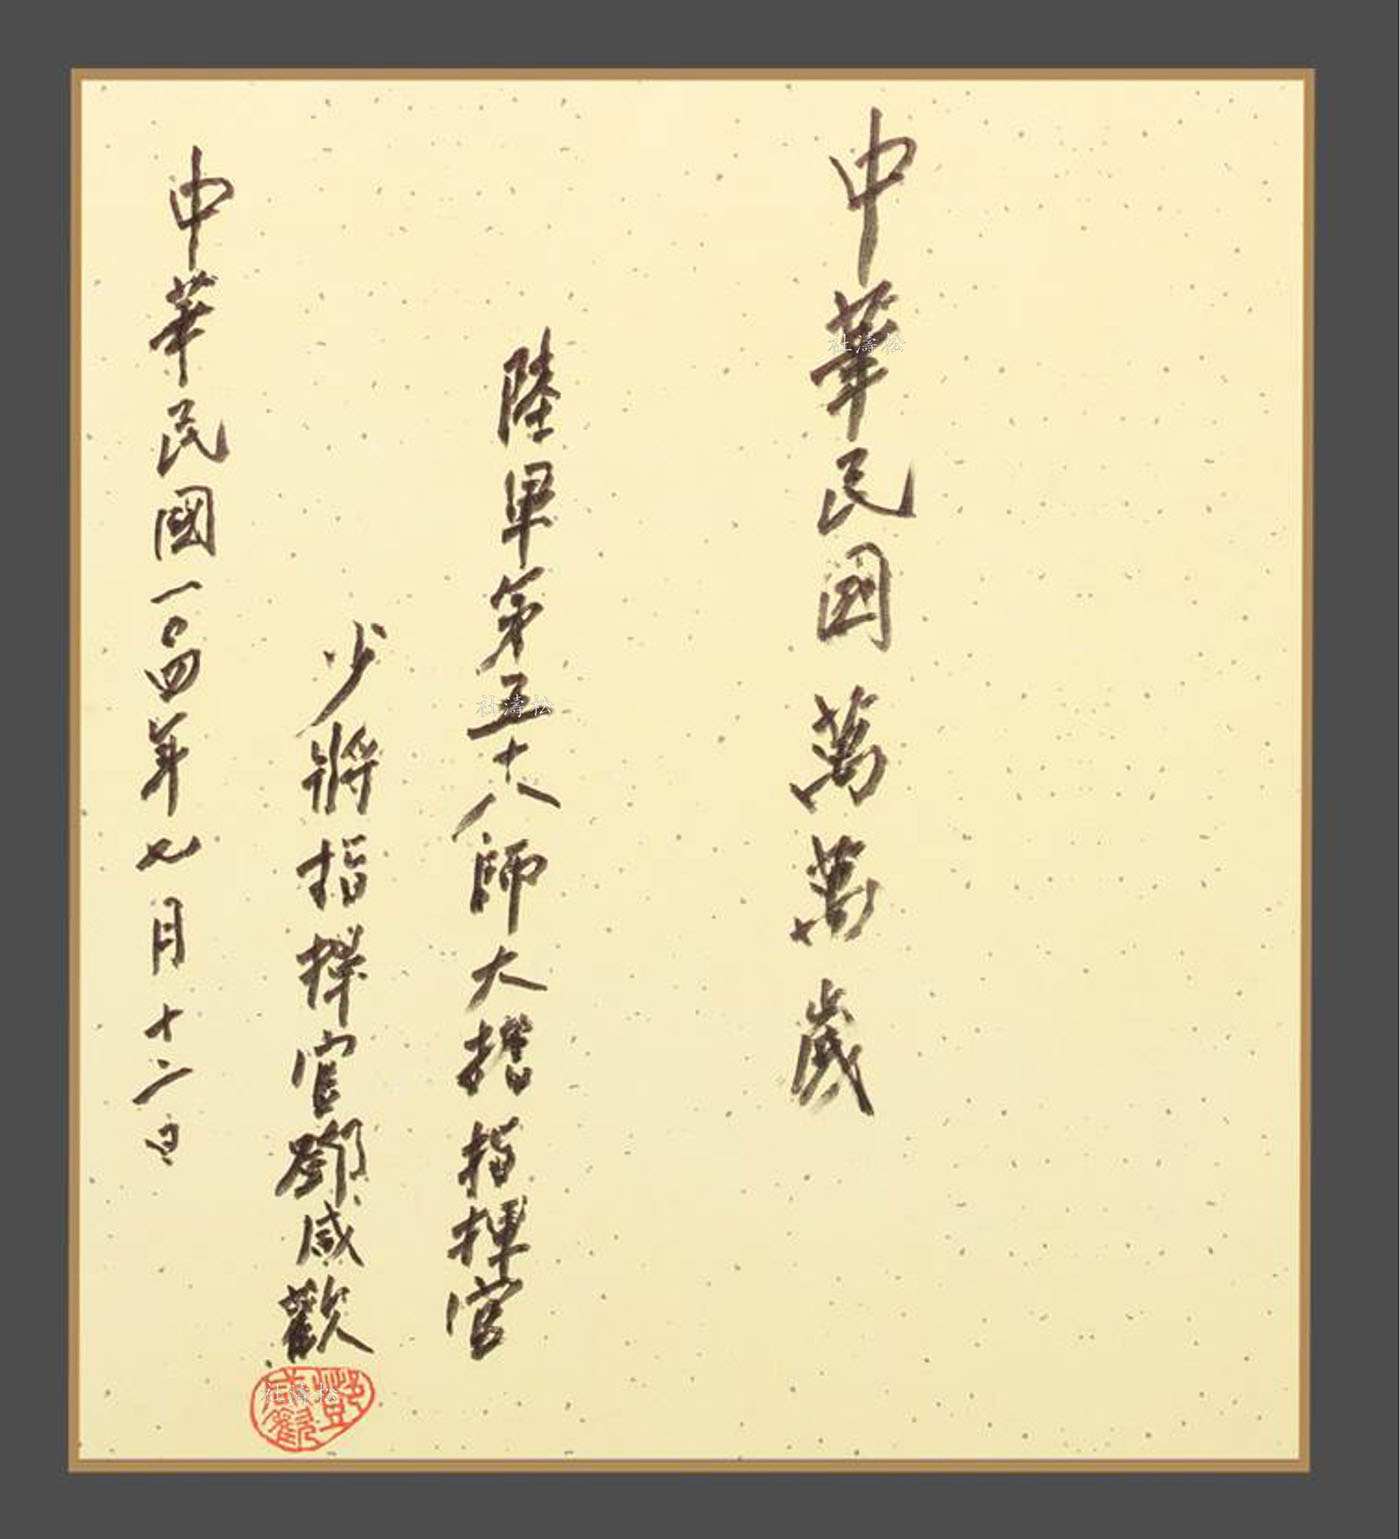 中華民國萬萬歲
陸軍第五十八師大擔指揮官
少將指揮官鄧咸歡
中華民國一〇四年七月十二日
鄧咸歡
杜濤松
杜濤松
杜濤松